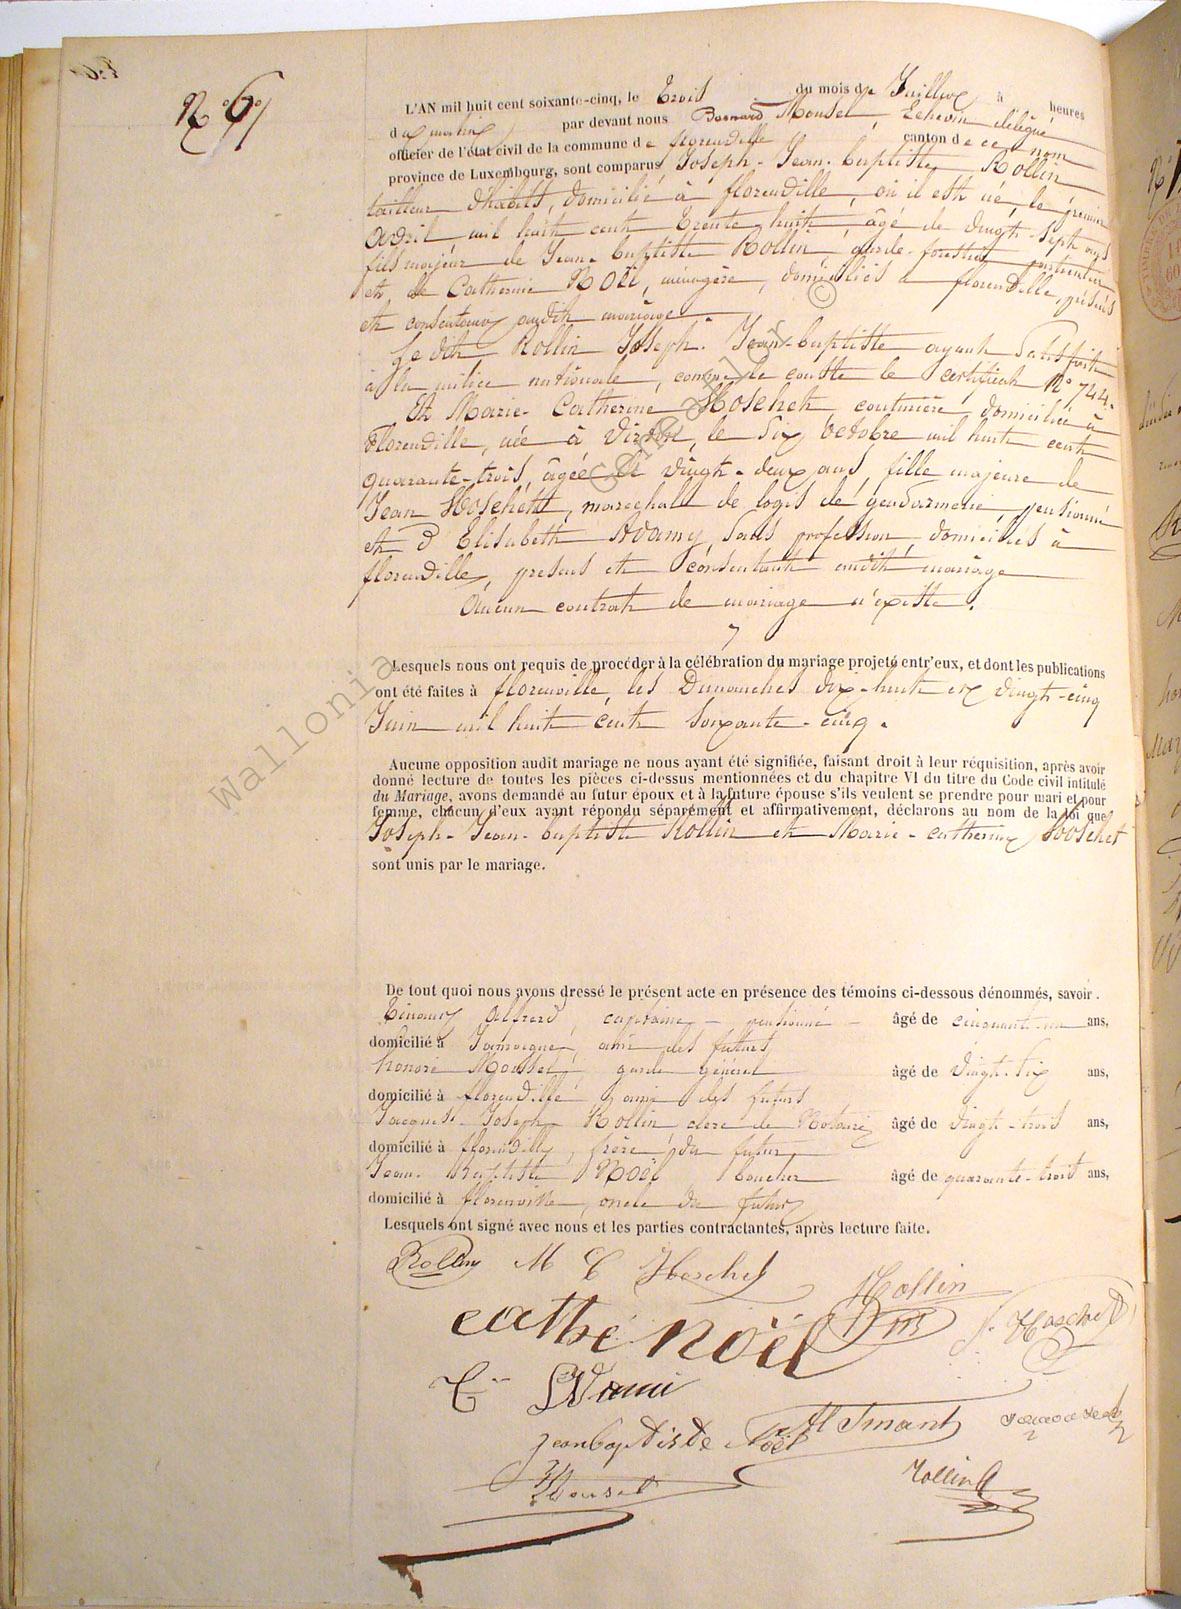 N° 6
L'AN mil huit cent soixante-cinq, le Trois du mois de Juillet à heures
du matin par devant nous Bernard Mousel, Echevin délégué
officier de l'état civil de la commune de florenville canton de ce nom
province de Luxembourg, sont comparus Joseph-Jean-baptiste Rollin
tailleur d'habits, domicilié à florenville, où il est né, le premier
avril mil huit cent trente huit, âgé de vingt-sept ans
fils majeur de Jean-baptiste Rollin, garde-forestier particulier
et de Catherine Noël, ménagère, domiciliés à florenville, présents
et consentans audit mariage.
Ledit Rollin Joseph-Jean-baptiste ayant satisfait
à la milice nationale, comme le conste le certificat N° 744.
Et Marie-Catherine Hoschet, couturière, domiciliée à
Florenville, née à Virton, le Six Octobre mil huit cent
quarante-trois, âgée de vingt-deux ans, fille majeure de
Jean Hoschett, marechall de logis de gendarmerie, pensionné
et d'Elisabeth Adamy, Sans profession, domiciliés à
florenville, présens et consentant audit mariage
Aucun contrat de mariage n'existe.
Lesquels nous ont requis de procéder à la célébration du mariage projeté entr'eux, et dont les publications
ont été faites à florenville, les Dimanches dix-huit et vingt-cinq
Juin mil huit cent Soixante-cinq.
Aucune opposition audit mariage ne nous ayant été signifiée, faisant droit à leur réquisition, après avoir
donné lecture de toutes les pièces ci-dessus mentionnées et du chapitre VI du titre du Code civil intitulé
du Mariage, avons demandé au futur époux et à la future épouse s'ils veulent se prendre pour mari et pour
femme, chacun d'eux ayant répondu séparément et affirmativement, déclarons au nom de la loi que
Joseph-Jean-baptiste Rollin et Marie-catherine Hoschet
sont unis par le mariage.
De tout quoi nous avons dressé le présent acte en présence des témoins ci-dessous dénommés, savoir.
Alfred, capitaine pensionné âgé de cinquante-un ans,
domicilié à Jamoigne, ami des futurs
honoré Mousel, garde général âgé de vingt-six ans,
domicilié à florenville, ami des futurs
Jacques Joseph Rollin clerc de Notaire âgé de vingt-trois ans,
domicilié à florenville, frère du futur
Jean-Baptiste Noël boucher âgé de quarante-trois ans,
domicilié à florenville, oncle du futur
Lesquels ont signé avec nous et les parties contractantes, après lecture faite.
Rollin M C Hoschet
Rollin
cathé noël J. Hoschet
E Adami
jean baptiste Noël
Mousel Rollin
Wallonia
Genealogy ©